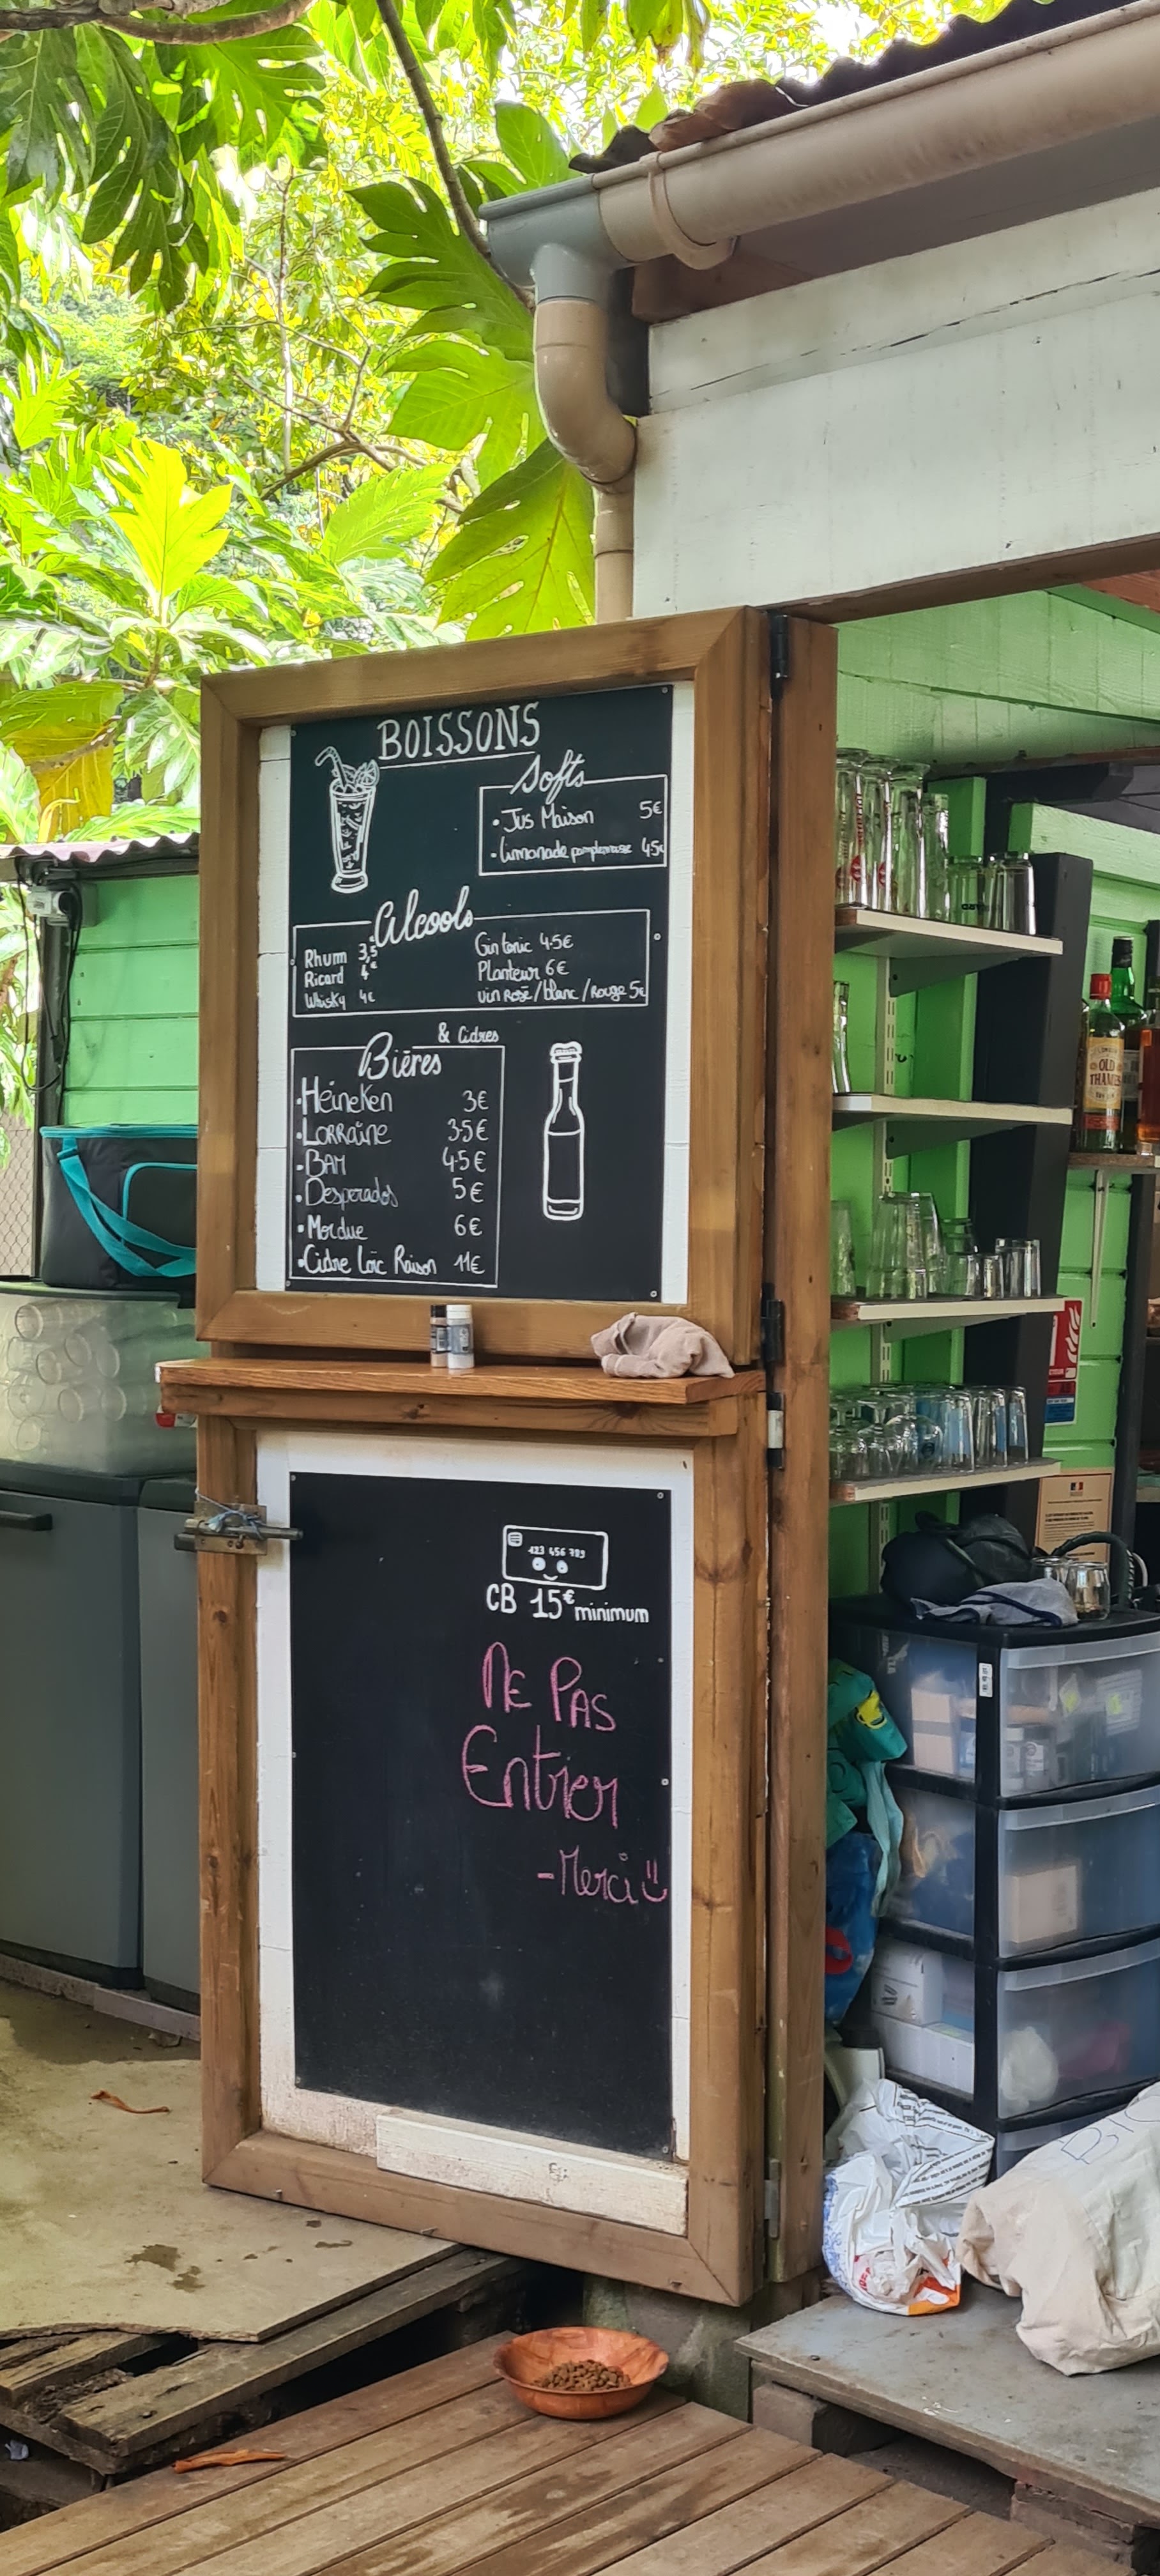 BOISSONS
Softs
• Jus Maison 5€
• Limonade pamplemousse 4.5€
Alcools
Rhum 3,5€
Ricard 4€
Whisky 4€
Gin tonic 4.5€
Planteur 6€
Vin Rosé / blanc / Rouge 5€
& Cidres
Bières
• Heineken 3€
• LORRAINE 3.5€
• BAM 4.5€
• Desperados 5€
• Mordue 6€
• Cidre Loïc Raison 11€
123 456 789
CB 15€ minimum
NE PAS
Entrer
- Merci
OLD
THAMES